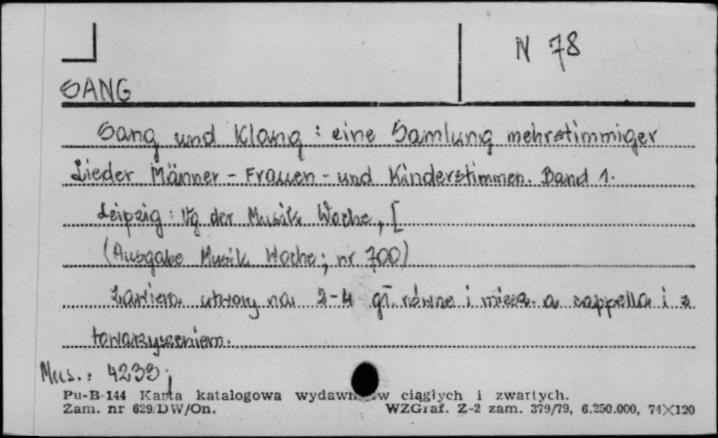 N 78
SANG
Sang und Klang : eine Samlung mehrstimmiger
Lieder Männer - Frauen - und Kinderstimmen. Band 1.
Leipzig : Vg der Musik Woche, [
(Ausgabe Musik Woche; nr 700)
Zawiera utwory na 2-4 gł. równe i miesz. a cappella i z
towarzyszeniem.
Mus.: 4233;
Pu-B-144 Karta katalogowa wydawn w ciągłych i zwartych.
Zam. nr 629/DW/On. WZGraf. Z-2 zam. 379/79, 6.250.000, 74×120